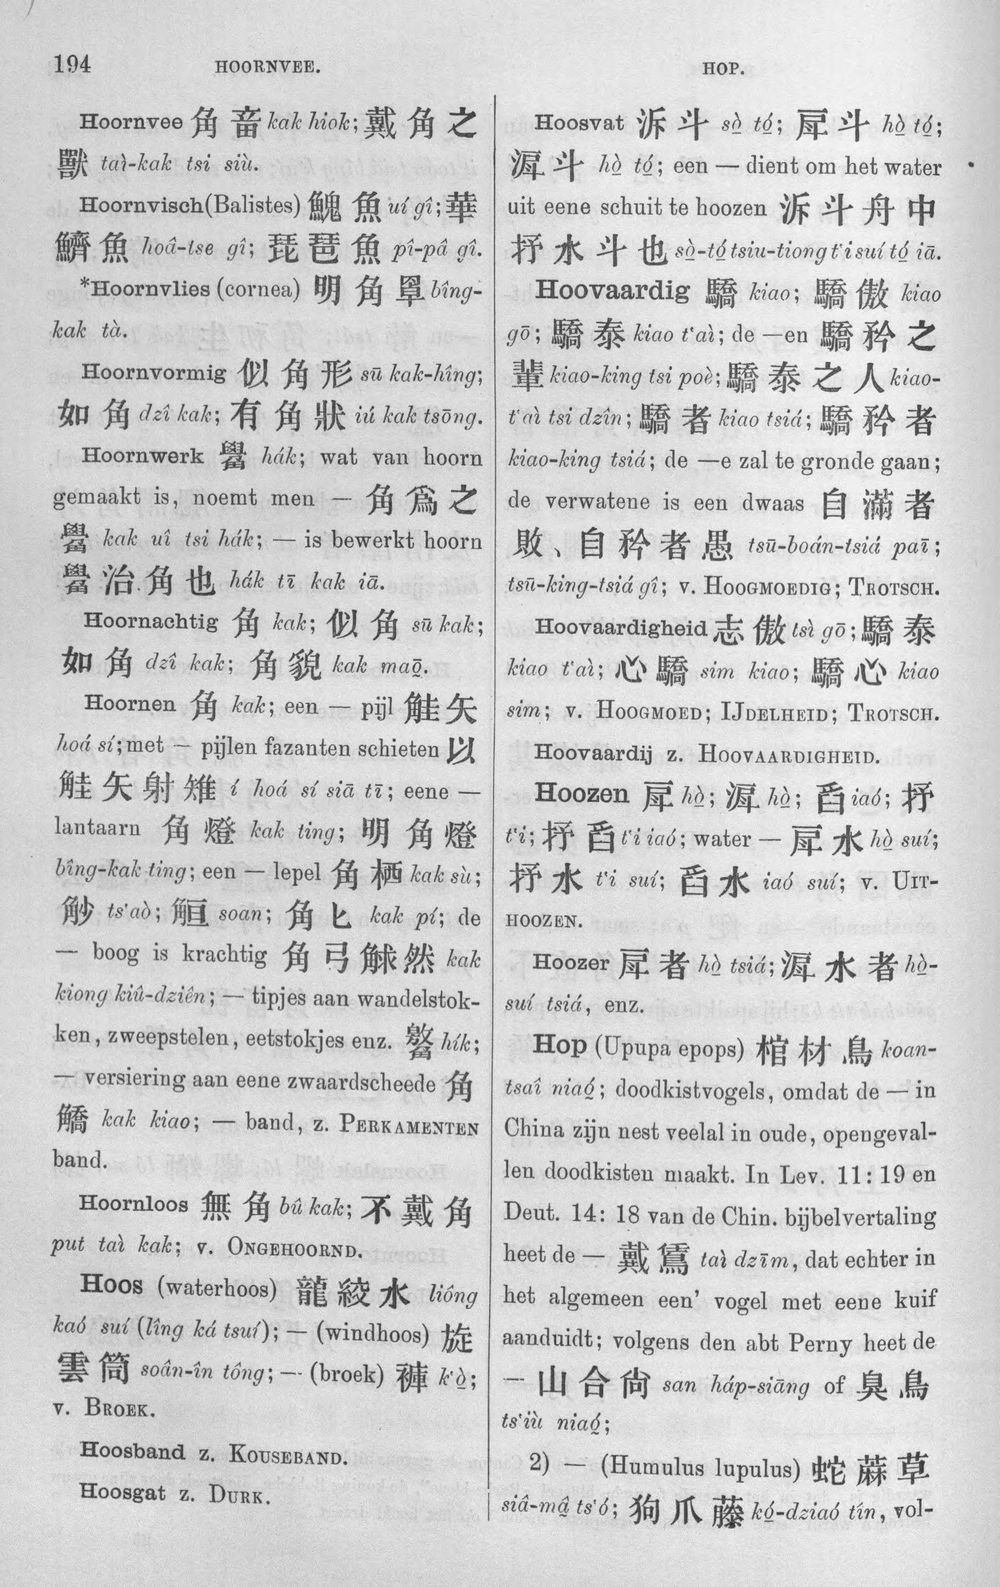 194
HOORNVEE.
HOP.
Hoornvee 角畜 kak hiok; 戴角之
獸 taì-kak tsi siù.
Hoornvisch (Balistes) 魏魚 uí gî; 華
鱭魚 hoâ-tse gî; 琵琶魚 pî-pâ gî.
*Hoornvlies (cornea) 明角罩 bîng-
kak tà.
Hoornvormig 似角形 sū kak-hîng;
如角 dzî kak; 有角狀 iú kak tsōng.
Hoornwerk 觷 hák; wat van hoorn
gemaakt is, noemt men — 角爲之
觷 kak uî tsi hák; — is bewerkt hoorn
觷治角也 hák tī kak iā.
Hoornachtig 角 kak; 似角 sū kak;
如角 dzî kak; 角貌 kak maō̤.
Hoornen 角 kak; een — pijl 觟矢
hoá sí; met — pijlen fazanten schieten 以
觟矢射雉 í hoá sí siā tī; eene —
lantaarn 角燈 kak ting; 明角燈
bîng-kak ting; een — lepel 角栖 kak sù;
觘 ts'aò; 䚙 soan; 角匕 kak pí; de
— boog is krachtig 角弓觩然 kak
kiong kiû-dziên; — tipjes aan wandelstok-
ken, zweepstelen, eetstokjes enz. hík;
— versiering aan eene zwaardscheede 角
觿 kak kiao; — band, z. PERKAMENTEN
band.
Hoornloos 無角 bû kak; 不戴角
put taì kak; v. ONGEHOORND.
Hoos (waterhoos) 龍絞水 liông
kaó suí (lîng ká tsuí); — (windhoos) 旋
雲筒 soân-în tông; — (broek) 褲 k'ò̤;
v. BROEK.
Hoosband z. KOUSEBAND.
Hoosgat z. DURK.
Hoosvat 泝斗 sò̤ tó̤; 戽斗 hò̤ tó̤;
滹斗 hò̤ tó̤; een — dient om het water
uit eene schuit te hoozen 泝斗舟中
抒水斗也 sò̤-tó̤ tsiu-tiong t'i suí tó̤ iā.
Hoovaardig 驕 kiao; 驕傲 kiao
gō; 驕泰 kiao t'aì; de —en 驕矜之
輩 kiao-king tsi poè; 驕泰之人 kiao-
t'aì tsi dzîn; 驕者 kiao tsiá; 驕矜者
kiao-king tsiá; de —e zal te gronde gaan;
de verwatene is een dwaas 自滿者
敗、自矜者愚 tsū-boán-tsiá paī;
tsū-king-tsiá gî; v. HOOGMOEDIG; TROTSCH.
Hoovaardigheid 志傲 tsì gō; 驕泰
kiao t'aì; 心驕 sim kiao; 驕心 kiao
sim; v. HOOGMOED; IJDELHEID; TROTSCH.
Hoovaardij z. HOOVAARDIGHEID.
Hoozen 戽 hò̤; 滹 hò̤; 舀 iaó; 抒
t'i; 抒舀 t'i iaó; water — 戽水 hò̤ suí;
抒水 t'i suí; 舀水 iaó suí; v. UIT-
HOOZEN.
Hoozer 戽者 hò̤ tsiá; 滹水者 hò̤-
suí tsiá, enz.
Hop (Upupa epops) 棺材鳥 koan-
tsaî niaó̤; doodkistvogels, omdat de — in
China zijn nest veelal in oude, opengeval-
len doodkisten maakt. In Lev. 11: 19 en
Deut. 14: 18 van de Chin. bijbelvertaling
heet de — 戴鵀 taì dzīm, dat echter in
het algemeen een' vogel met eene kuif
aanduidt; volgens den abt Perny heet de
— 山合尙 san háp-siāng of 臭鳥
ts'iù niaó̤;
2) — (Humulus lupulus) 蛇蔴草
siâ-mâ̤ ts'ó; 狗爪藤 kó̤-dziaó tîn, vol-